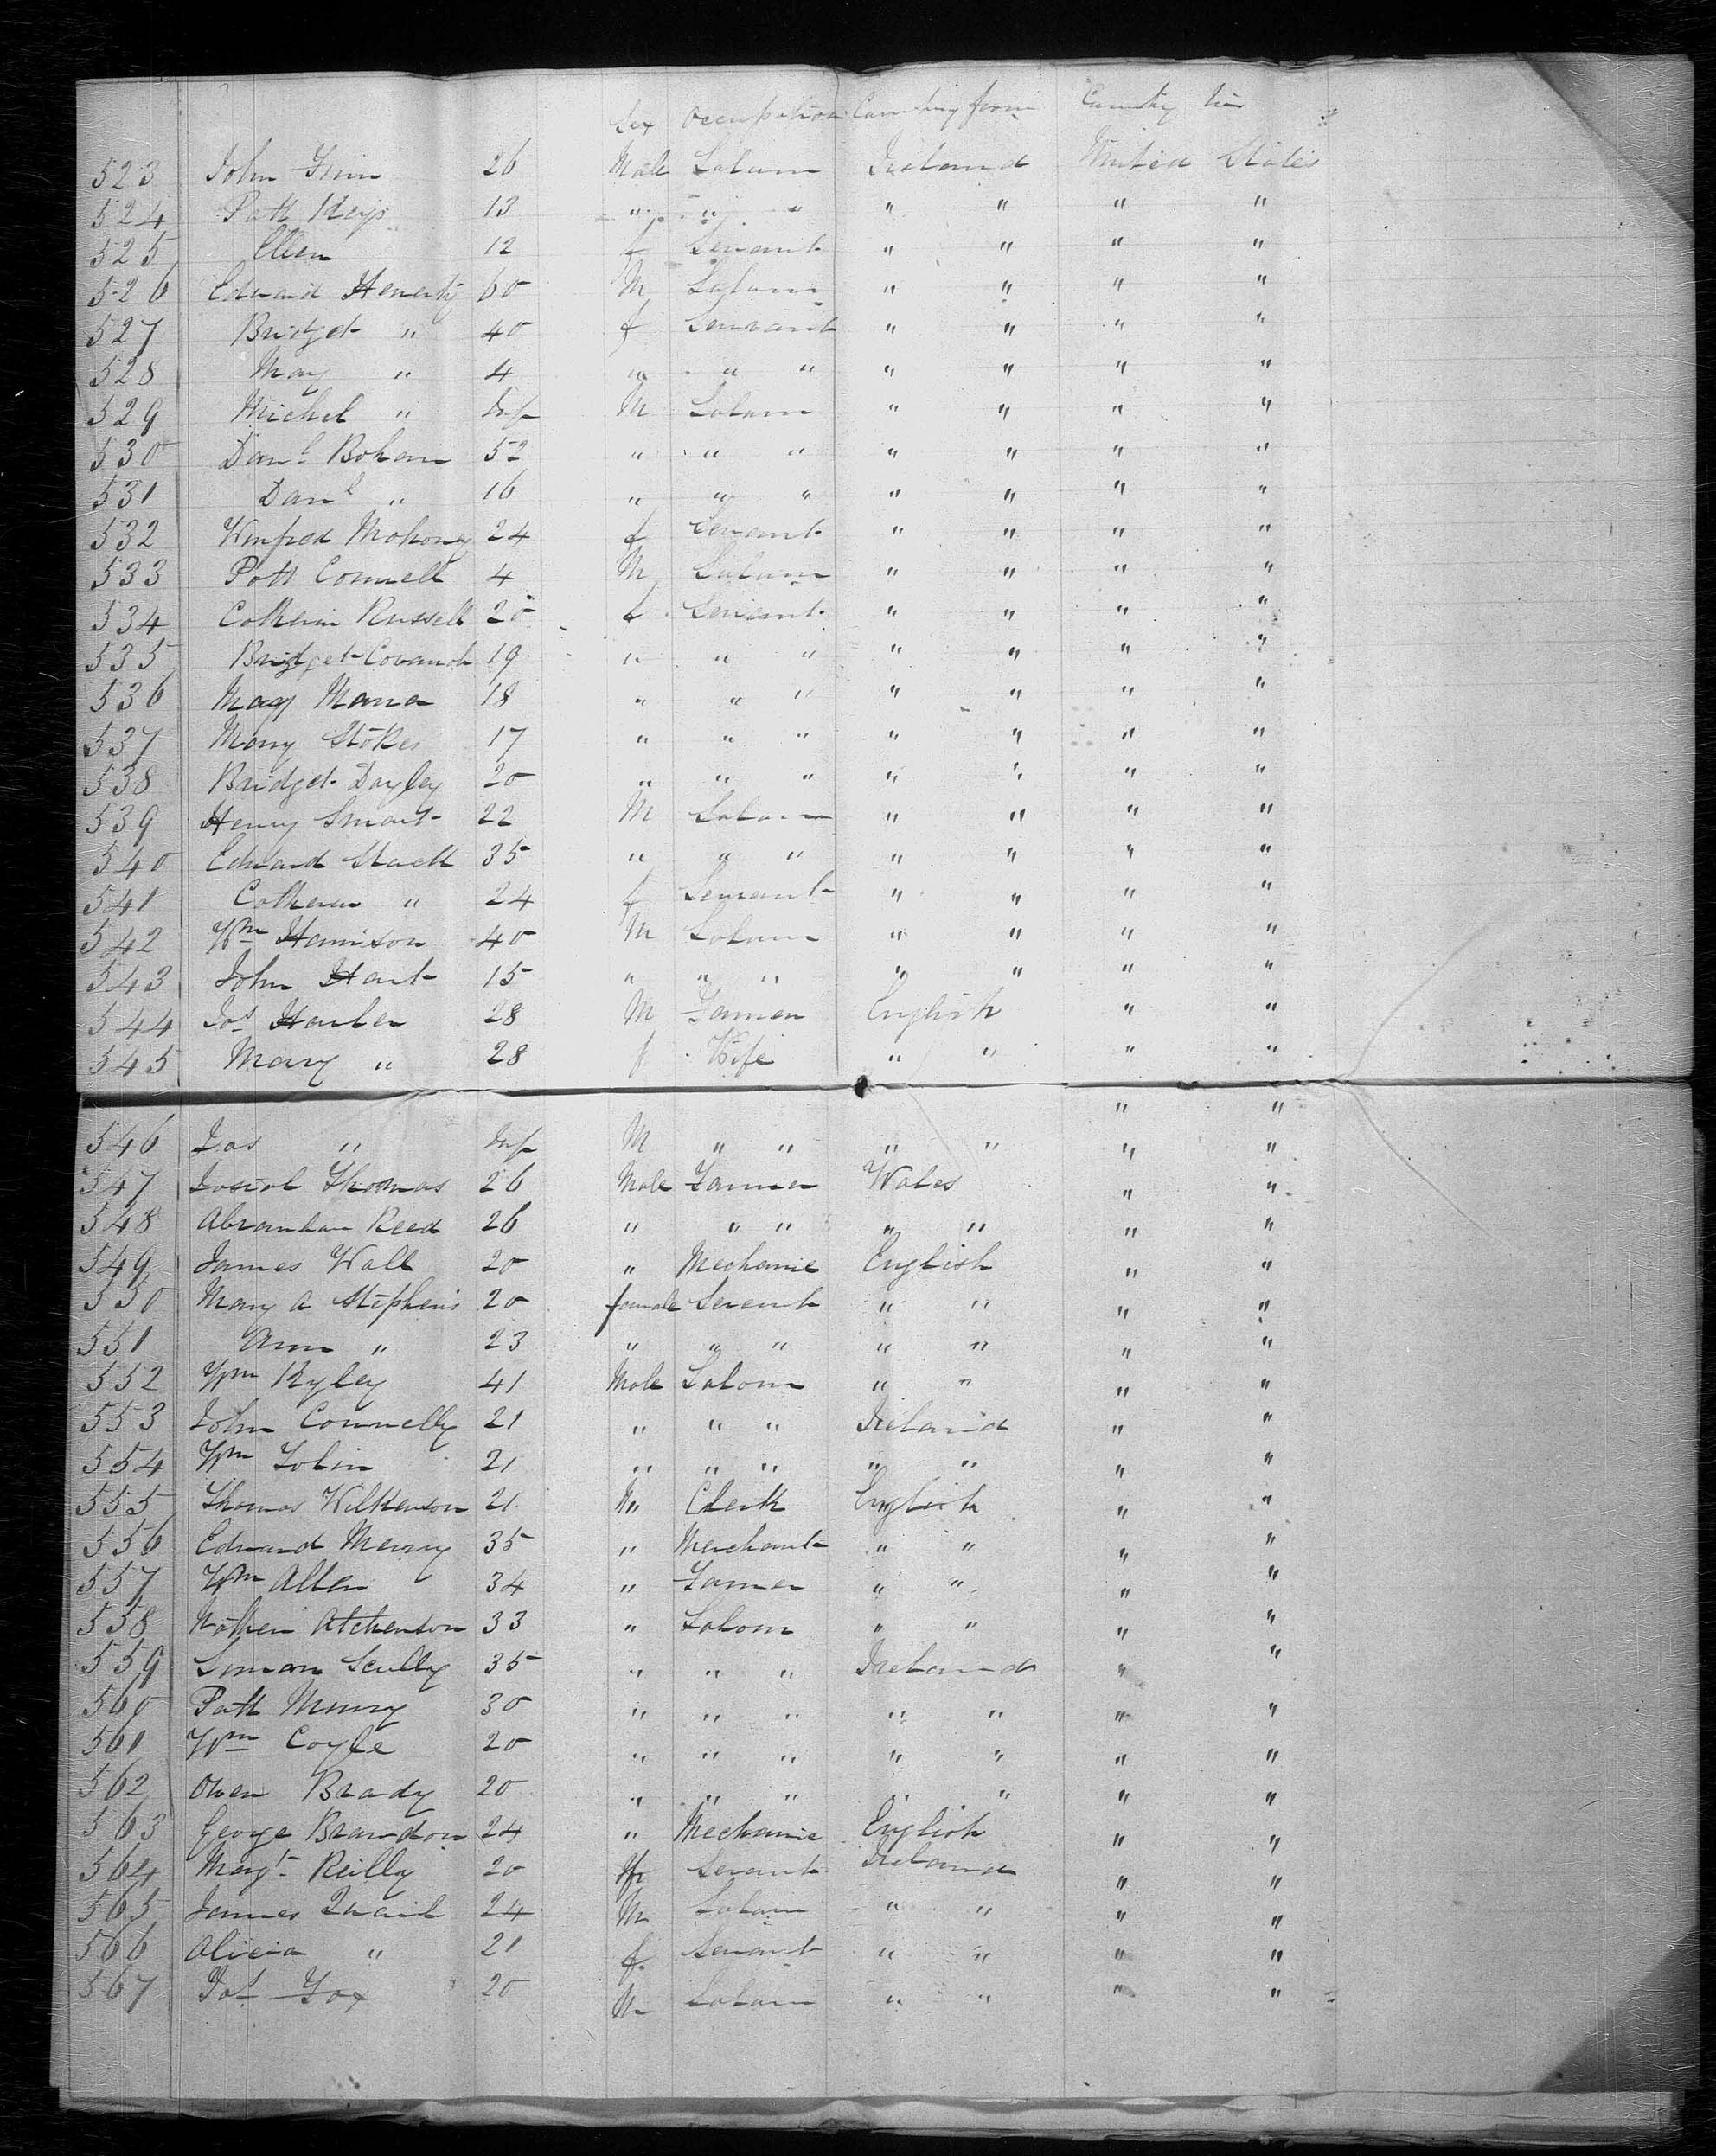 Sex Occupation Country from Country
523 John 26 Male Labour Ireland United States
524 Patt Keys 13 " " " " " " "
525 Ellen 12 f Servant " " " "
526 Edward Henerty 60 M Labour " " " "
527 Bridget " 40 f Servant " " " "
528 Mary " 4 " " " " " " "
529 Michel " Inf M Labour " " " "
530 Danl Bohan 52 " " " " " " "
531 Danl " 16 " " " " " " "
532 Winfred Mohony 24 f Servant " " " "
533 Patt Connell 4 M Labour " " " "
534 Catherin Russell 20 f Servant " " " "
535 Bridget Covanah 19 " " " " " " "
536 Mary Mara 18 " " " " " " "
537 Mary Stokes 17 " " " " " " "
538 Bridget Dayley 20 " " " " " " "
539 Henry Smart 22 M Labour " " " "
540 Edward Stack 35 " " " " " " "
541 Catherin " 24 f Servant " " " "
542 Wm Harrison 40 M Labour " " " "
543 John Hart 15 " " " " " " "
544 Jos 28 M Farmer English " "
545 Mary " 28 f Wife " " " "
" "
546 Jos " Inf M " " " " " "
547 Thomas 26 Male Farmer Wales " "
548 Abraham Reed 26 " " " " " " "
549 James Wall 20 " Mechanic English " "
550 Mary A Stephens 20 female Servent " " " "
551 Ann " 23 " " " " " " "
552 Wm Ryley 41 Male Labour " " " "
553 John Connelly 21 " " " Ireland " "
554 Wm Tobin 21 " " " " " " "
555 Thomas Wilkenson 21 M " Clerk English " "
556 Edward 35 " Merchant " " " "
557 Wm Allen 34 " Farmer " " " "
558 Nathen Atchenson 33 " Labour " " " "
559 Simon Scully 35 " " " Ireland " "
560 Patt Murry 30 " " " " " " "
561 Wm Coyle 20 " " " " " " "
562 Owen Brady 20 " " " " " " "
563 George Brandon 24 " Mechanic English " "
564 Margt Reilly 20 f Servant Ireland " "
565 James Quail 24 M Labour " " " "
566 Alicia " 21 f Servant " " " "
567 Fox 20 M Labour " " " "